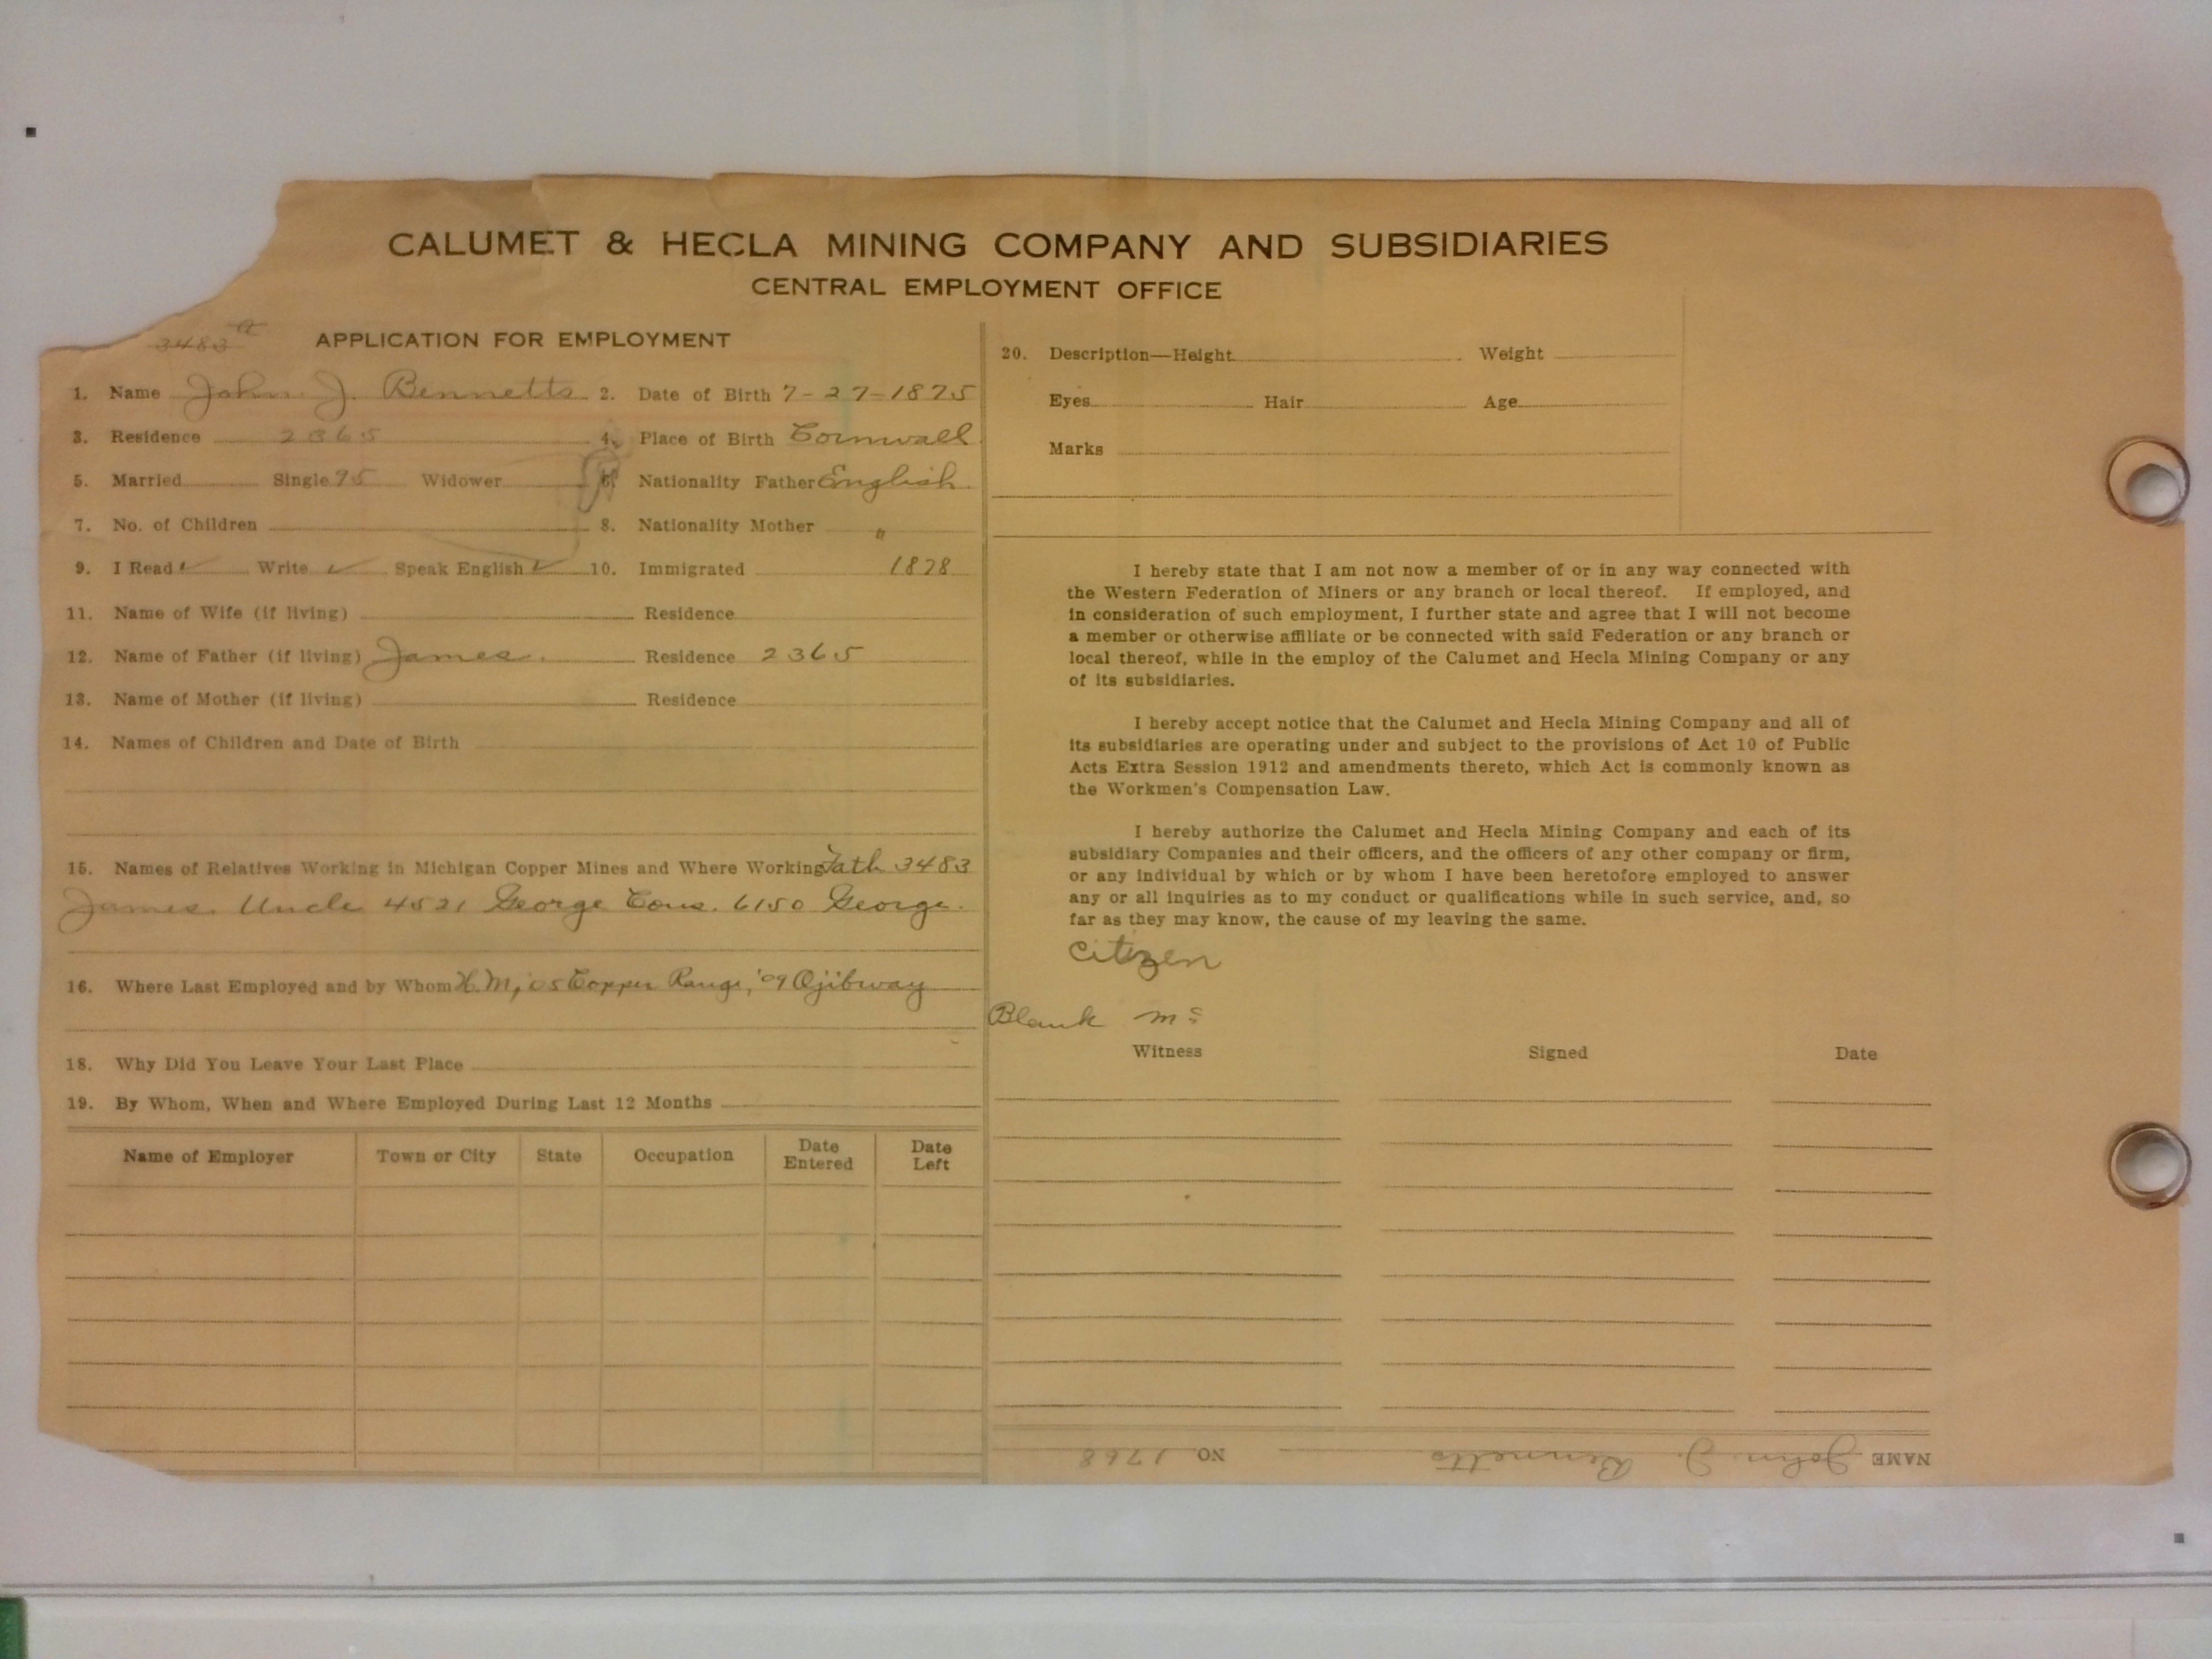 CALUMET & HECLA MINING COMPANY AND SUBSIDIARIES
CENTRAL EMPLOYMENT OFFICE
3483
APPLICATION FOR EMPLOYMENT
1. Name John. J. Bennetts 2. Date of Birth 7-27-1875
3. Residence 2365 4. Place of Birth Cornwall
5. Married Single 75 Widower 6. Nationality Father English
7. No. of Children 8. Nationality Mother "
9. I Read ✓ Write ✓ Speak English ✓ 10. Immigrated 1878
11. Name of Wife (if living) Residence
12. Name of Father (if living) James. Residence 2365
13. Name of Mother (if living) Residence
14. Names of Children and Date of Birth
15. Names of Relatives Working in Michigan Copper Mines and Where Working Fath 3483
James. Uncle 4521 George Cous. 6150 George.
16. Where Last Employed and by Whom H.M, '05 Copper Range, '09 Ojibway
18. Why Did You Leave Your Last Place
19. By Whom, When and Where Employed During Last 12 Months
Name of Employer Town or City State Occupation Date Entered Date Left
20. Description—Height Weight
Eyes Hair Age
Marks
I hereby state that I am not now a member of or in any way connected with
the Western Federation of Miners or any branch or local thereof. If employed, and
in consideration of such employment, I further state and agree that I will not become
a member or otherwise affiliate or be connected with said Federation or any branch or
local thereof, while in the employ of the Calumet and Hecla Mining Company or any
of its subsidiaries.
I hereby accept notice that the Calumet and Hecla Mining Company and all of
its subsidiaries are operating under and subject to the provisions of Act 10 of Public
Acts Extra Session 1912 and amendments thereto, which Act is commonly known as
the Workmen's Compensation Law.
I hereby authorize the Calumet and Hecla Mining Company and each of its
subsidiary Companies and their officers, and the officers of any other company or firm,
or any individual by which or by whom I have been heretofore employed to answer
any or all inquiries as to my conduct or qualifications while in such service, and, so
far as they may know, the cause of my leaving the same.
Citizen
Blank
Witness Signed Date
NAME John. J. Bennetts NO. 1768